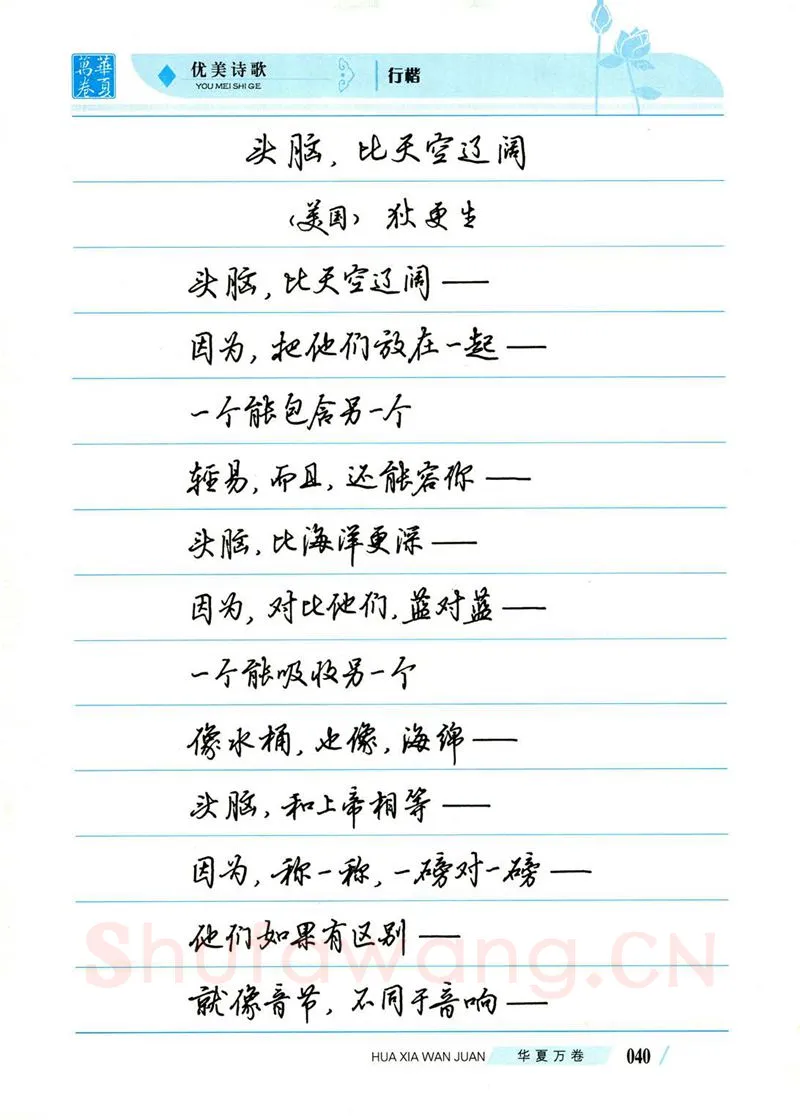 華夏萬卷
优美诗歌
YOU MEI SHI GE
行楷
头脑，比天空辽阔
（美国） 狄更生
头脑，比天空辽阔——
因为，把他们放在一起——
一个能包含另一个
轻易，而且，还能容你——
头脑，比海洋更深——
因为，对比他们，蓝对蓝——
一个能吸收另一个
像水桶，也像，海绵——
头脑，和上帝相等——
因为，称一称，一磅对一磅——
他们如果有区别——
就像音节，不同于音响——
Shufawang.CN
HUA XIA WAN JUAN
华夏万卷
040